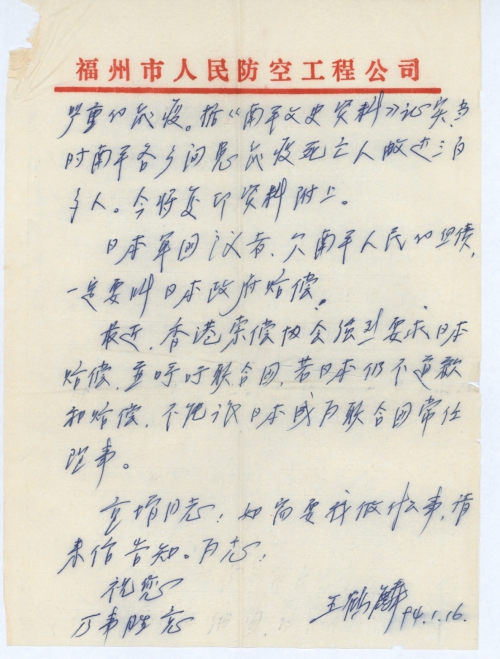 福州市人民防空工程公司
严重的鼠疫。据《南平文史资料》证实，当
时南平各乡间患鼠疫死亡人数达三百
多人。今将复印资料附上。
日本军国议者，欠南平人民的血债，
一定要叫日本政府赔偿。
最近，香港索偿协会强烈要求日本
赔偿，并呼吁联合国，若日本仍不道歉
和赔偿，不允许日本成为联合国常任
理事。
同志：如需要我做什么事，请
来信告知。
祝您
万事胜意
王鹤 94.1.16.